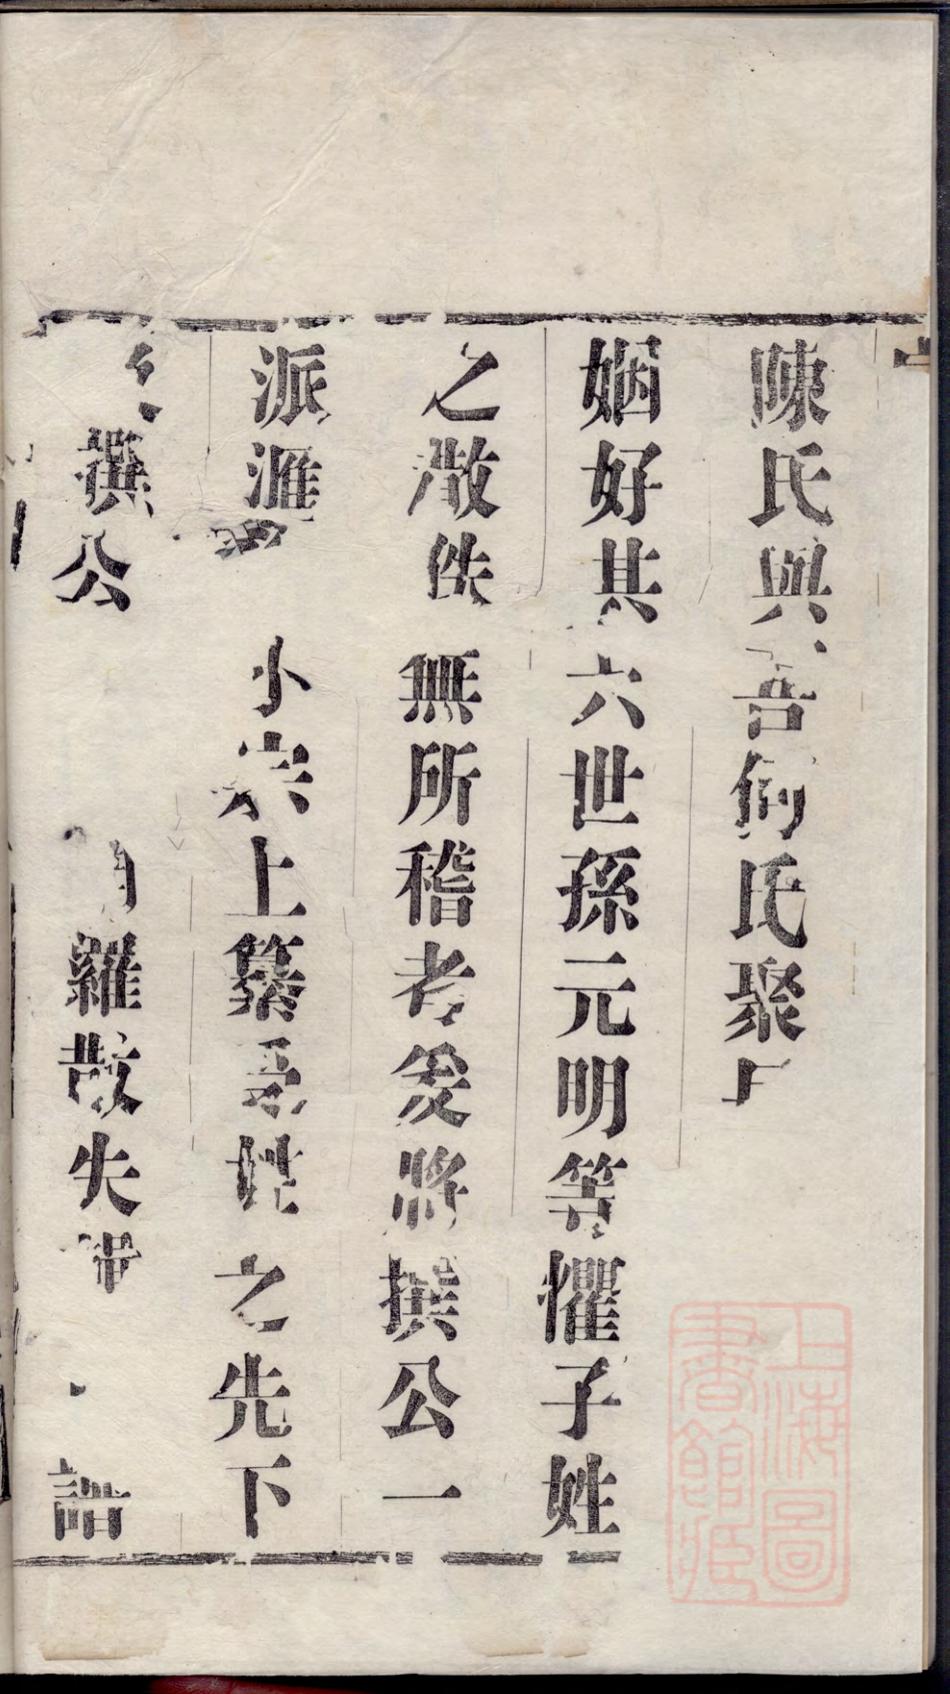 陳氏與吾何氏聚
姻好其六世孫元明等懼子姓
之散佚無所稽考爰將撰公一
派滙 小宗上纂受姓之先下
撰公 羅散失 譜
上海圖書館藏